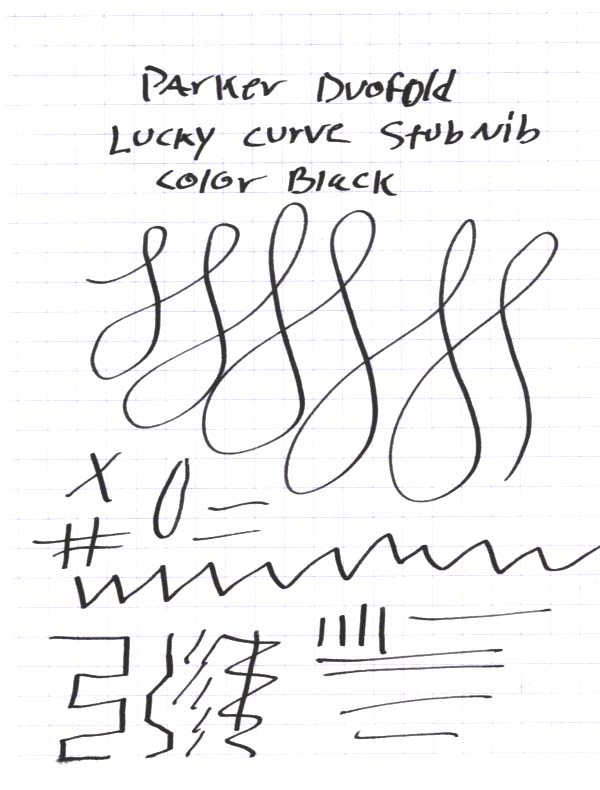 Parker Duofold
Lucky Curve Stub Nib
Color Black
X O =
#